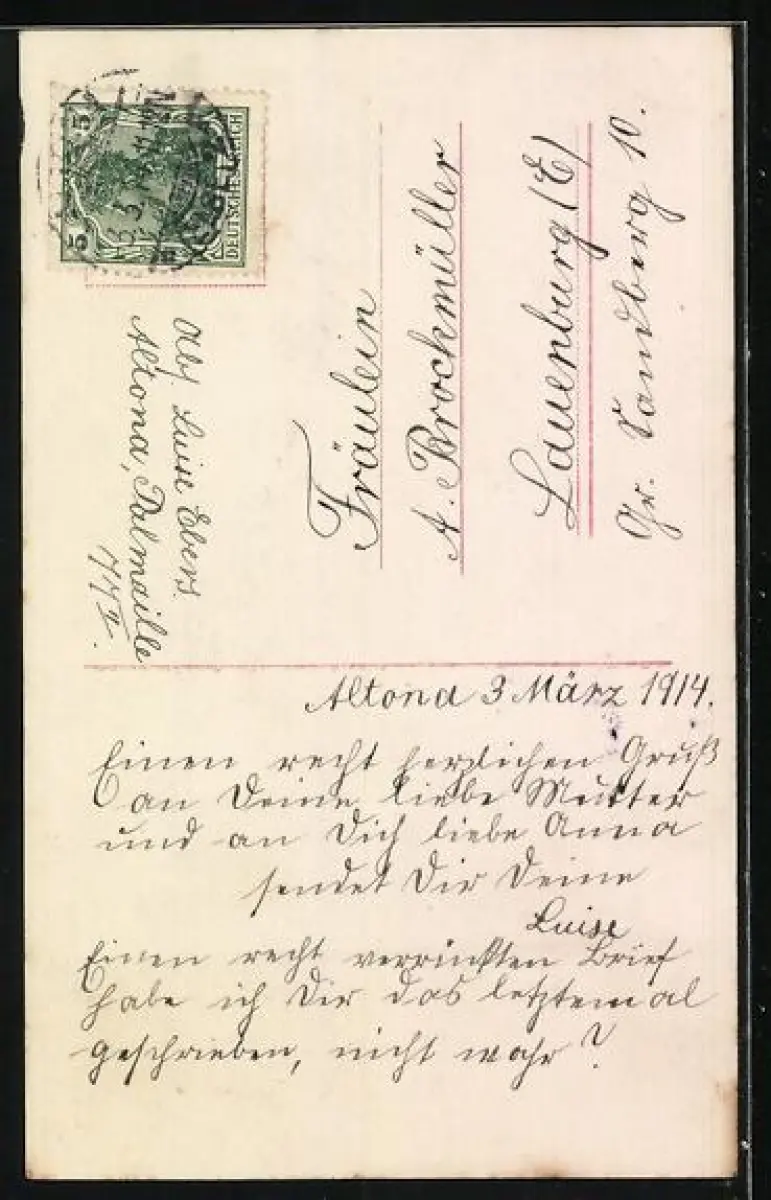 5 5
DEUTSCHES REICH
3.3.14
Abs. Luise Ebers.
Altona, Palmaille
77 II.
Fräulein
A. Brockmüller
Lauenburg (E)
Gr. Sandberg 10.
Altona 3 März 1914.
Einen recht herzlichen Gruß
an Deine liebe Mutter
und an Dich liebe Anna
sendet Dir Deine
Luise
Einen recht verrückten Brief
habe ich Dir das letztemal
geschrieben, nicht wahr?